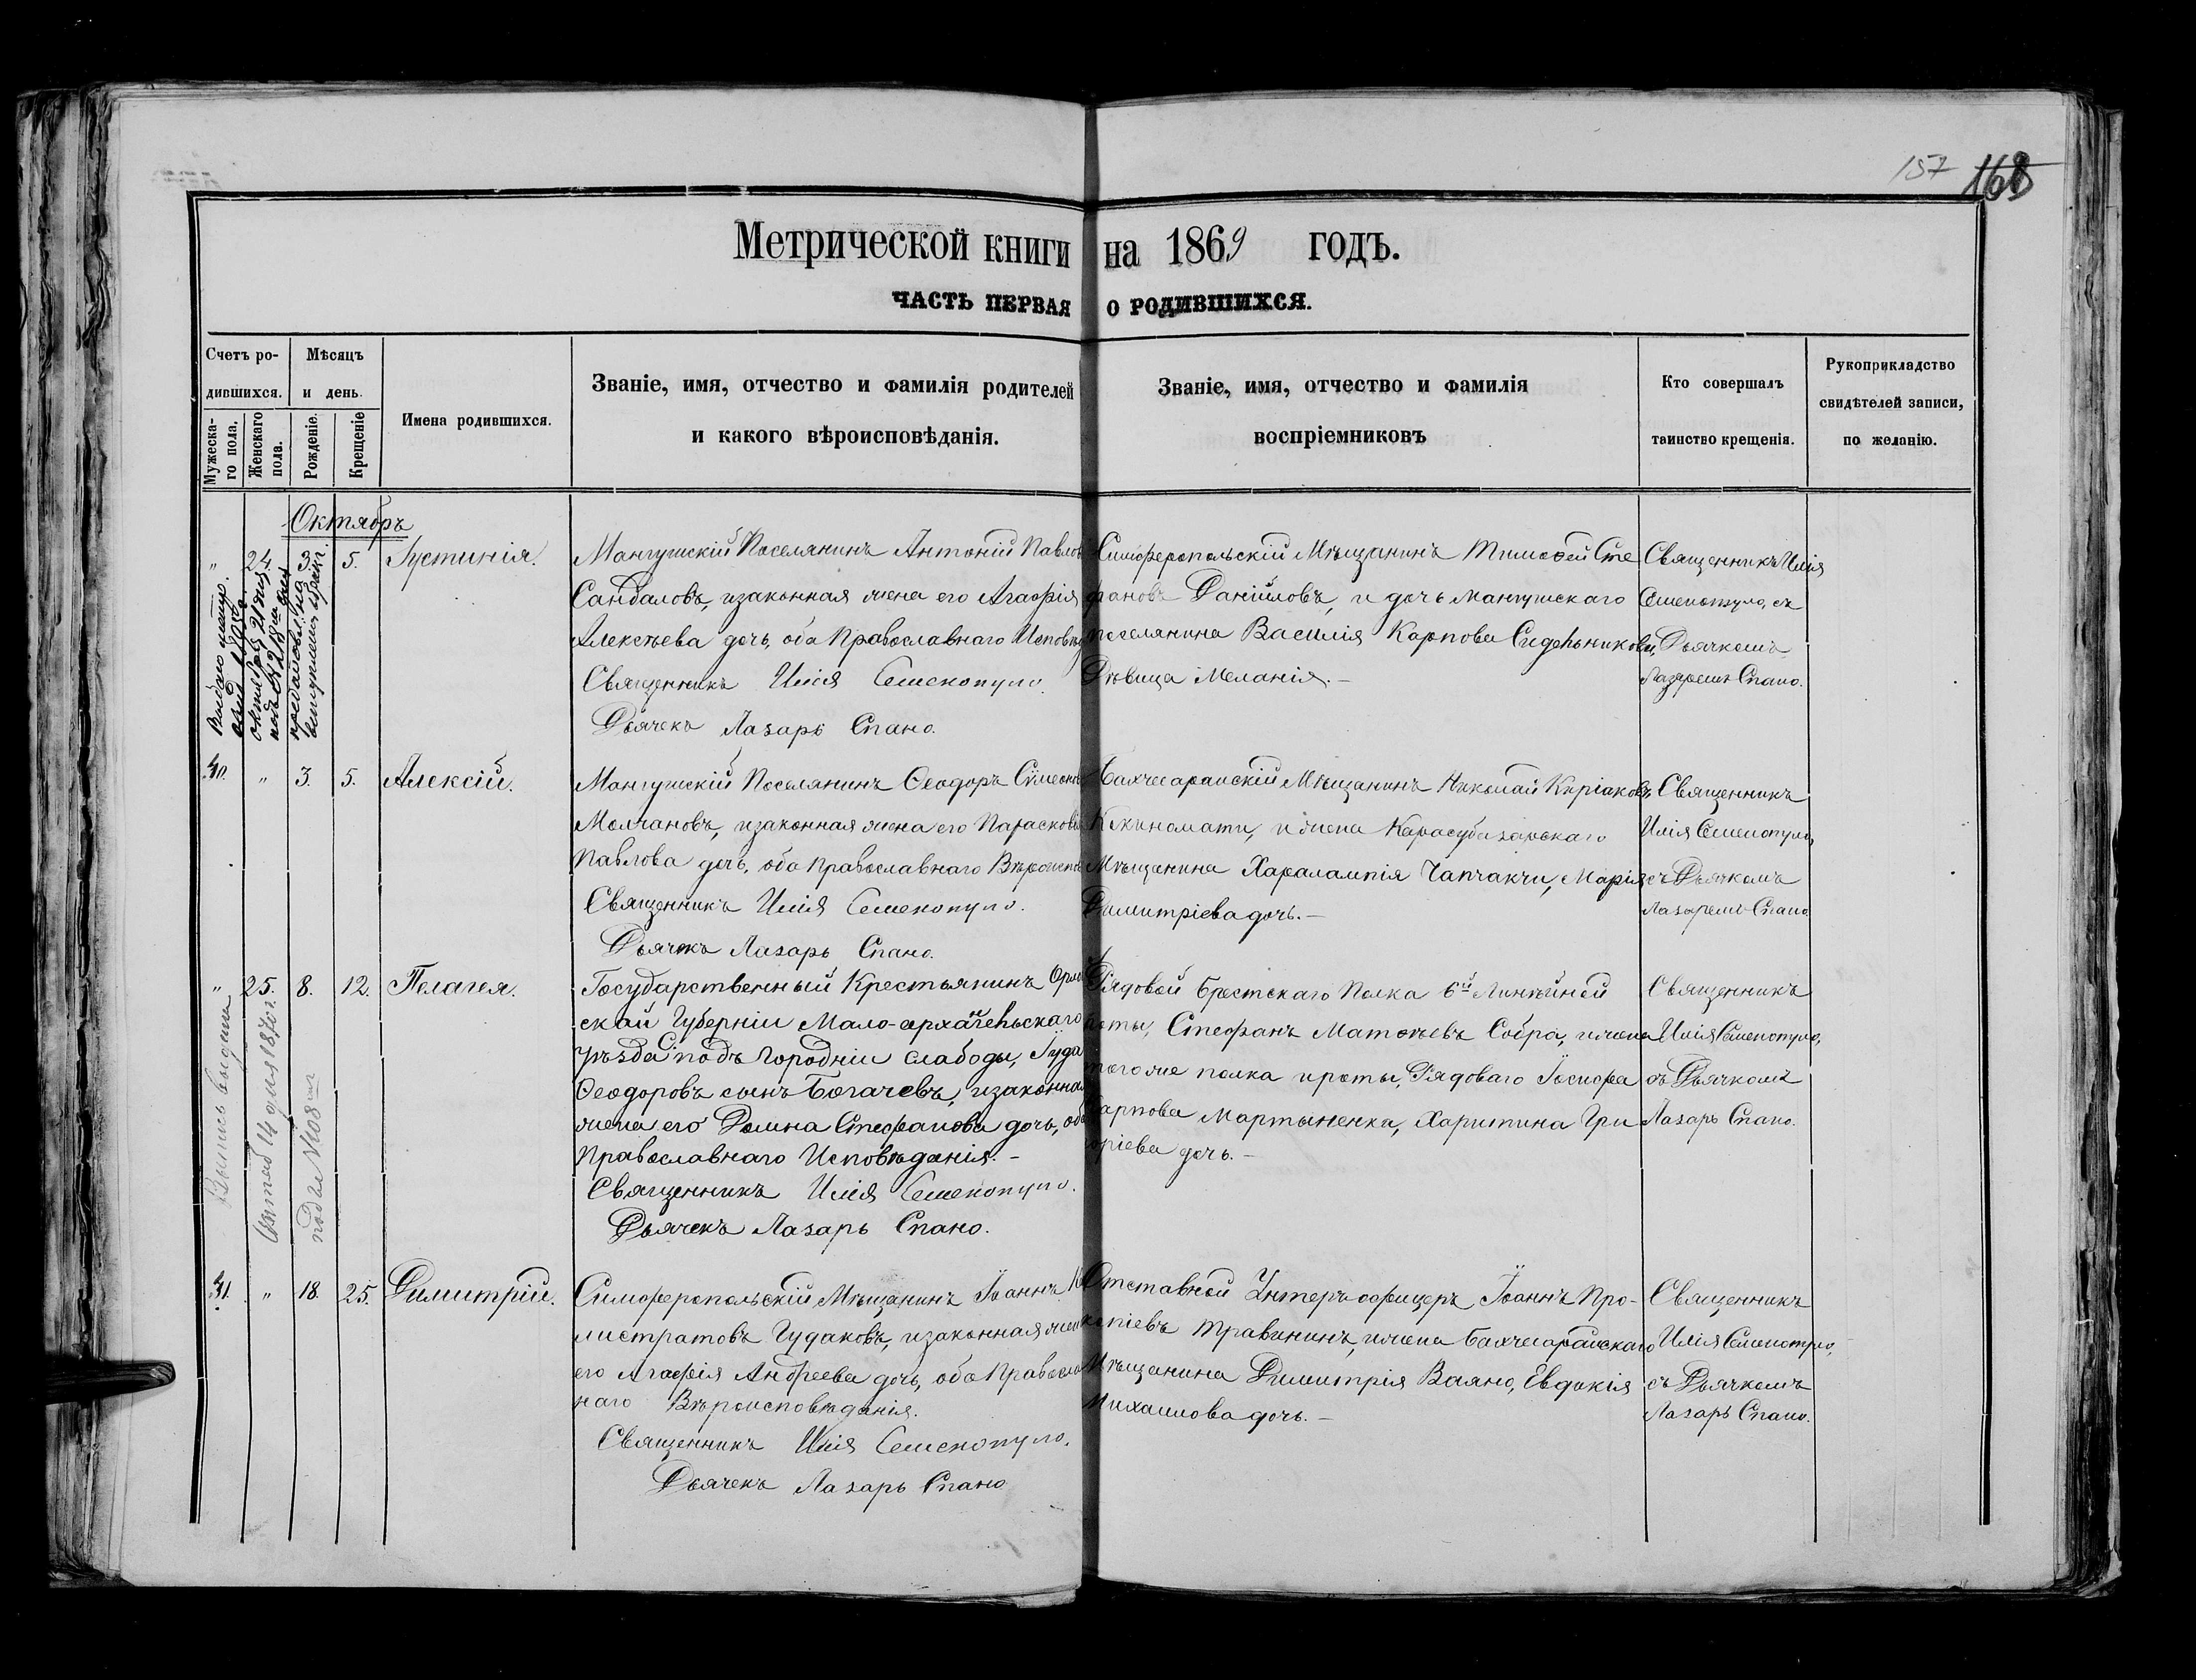 157 168
Метрической книги на 1869 годъ.
ЧАСТЬ ПЕРВАЯ О РОДИВШИХСЯ.
Счетъ ро-
дившихся.
Мужеска-
го пола.
Женскаго
пола.
Мѣсяцъ
и день.
Рожденіе.
Крещеніе
Имена родившихся.
Званіе, имя, отчество и фамилія родителей
и какого вѣроисповѣданія.
Званіе, имя, отчество и фамилія
воспріемниковъ
Кто совершалъ
таинство крещенія.
Рукоприкладство
свидѣтелей записи,
по желанію.
Октябръ
" 24. 3. 5. Іустинія.
Мангушскій Поселянинъ Антоній Павловъ
Сандаловъ, изаконная жена его Агафія
Алексѣева дочь, оба Православнаго Исповѣд
Священникъ Илія Семенопуло.
Дьячекъ Лазарь Спано.
Симферопольскій Мѣщанинъ Тимофей Сте
фановъ Даніиловъ, и дочь Мангушскаго
поселянина Василія Карпова Сидельникова,
Дѣвица Меланія.—
Священникъ Илія
Семенопуло, съ
Дьячкомъ
Лазаремъ Спано.
30. " 3. 5. Алексій.
Мангушскій Поселянинъ Ѳеодоръ Сѵмеоновъ
Молчановъ, изаконная жена его Параскова
Павлова дочь, оба Православнаго Вѣроиспов
Священникъ Илія Семенопуло.
Дьячекъ Лазарь Спано.
Бахчесарайскій Мѣщанинъ Николай Киріаковъ
и жена Карасубазарскаго
Мѣщанина Харалампія Чапчакчи, Марія
Димитріева дочь.—
Священникъ
Илія Семенопуло,
съ Дьячкомъ
Лазаремъ Спано.
" 25. 8. 12. Пелагея.
Выпись выдана
14 1870 г.
подъ № 108
Государственный Крестьянинъ Орлов
ской Губерніи Мало-архангельскаго
уѣзда подъ Городніи слабоды, Іуда
Ѳеодоровъ сынъ Богачевъ, изаконная
жена его Домна Стефанова дочь, оба
Православнаго Исповѣданія.—
Священникъ Илія Семенопуло.
Дьячекъ Лазарь Спано.
Рядовой Брестскаго Полка 6й Линѣйной
роты, Стефанъ Матвѣевъ Собра, и жена
того же полка и роты, Рядоваго Іосифа
Карпова Мартыненка, Харитина Гри
горіева дочь.—
Священникъ
Илія Семенопуло,
съ Дьячкомъ
Лазарь Спано.
31. " 18. 25. Димитрій.
Симферопольскій Мѣщанинъ Іоаннъ Ка
листратовъ Гудаковъ, изаконная жена
его Агафія Андреева дочь, оба Православ
наго Вѣроисповѣданія.
Священникъ Илія Семенопуло.
Дьячекъ Лазарь Спано
Отставной Унтеръ-офицеръ Іоаннъ Про-
копіевъ Травинин, и жена Бахчесарайскаго
Мѣщанина Димитрія Ваяно, Евдокія
Михаилова дочь.—
Священникъ
Илія Семенопуло,
съ Дьячкомъ
Лазарь Спано.